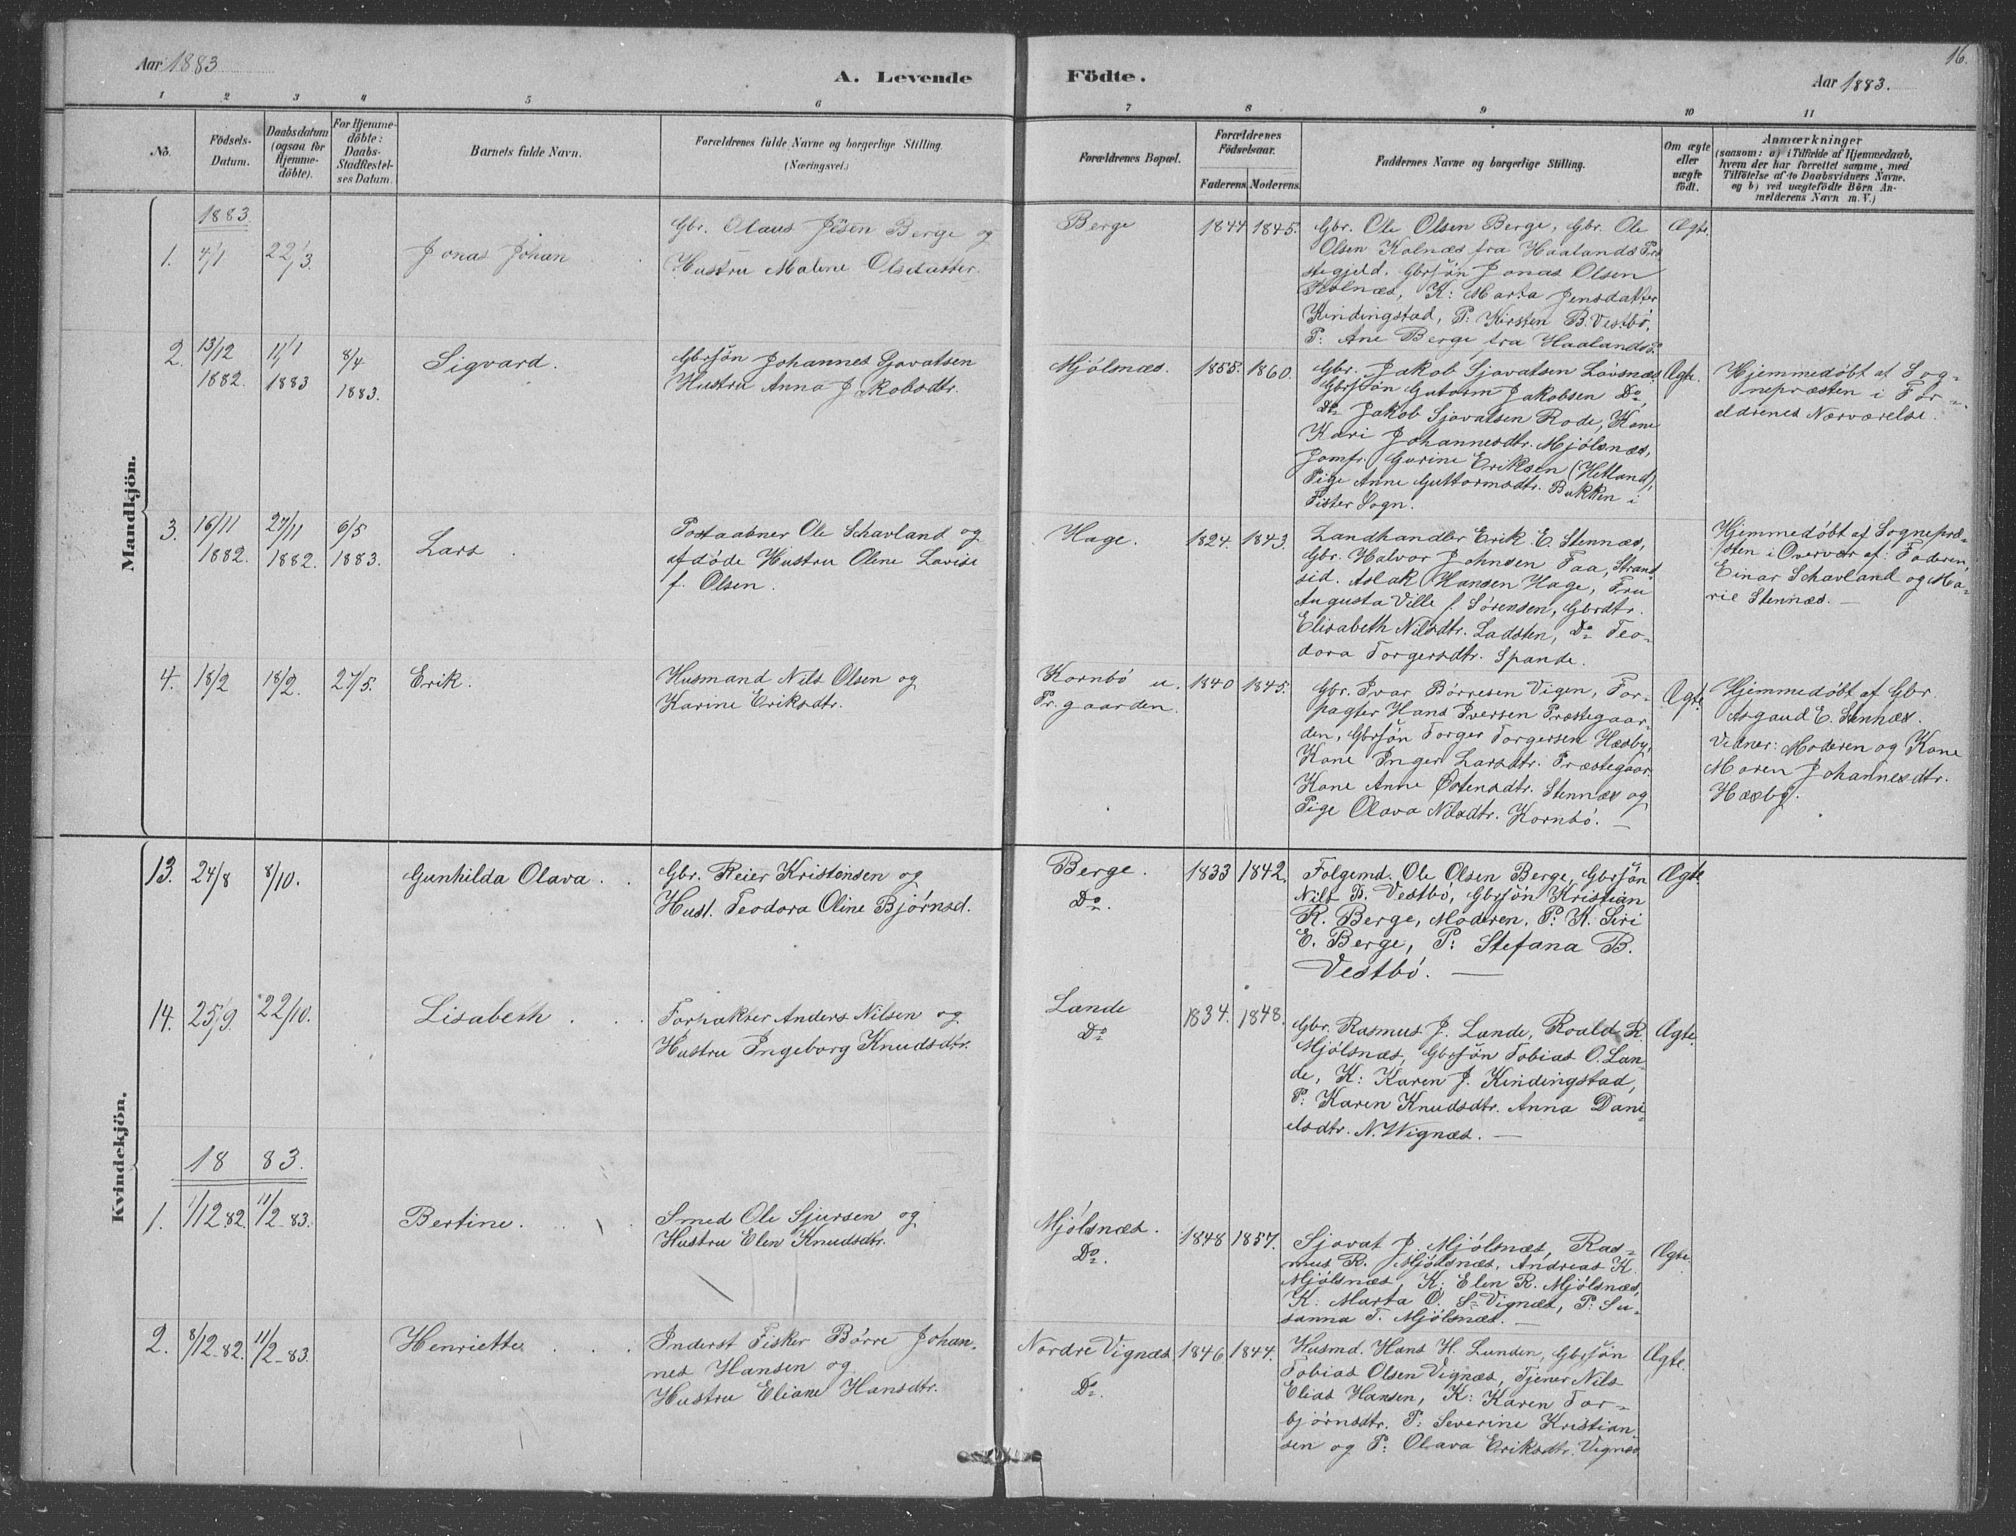 Aar 1883
A. Levende
Födte.
16.
Aar 1883.
1 2 3 4 5 6 7 8 9 10 11
No.
Födsels-
Datum.
Daabsdatum
(ogsaa for
Hjemme-
döbte).
For Hjemme-
döbte:
Daabs-
Stadfæstel-
ses Datum.
Barnets fulde Navn.
Forældrenes fulde Navne og borgerlige Stilling.
(Næringsvei.)
Forældrenes Bopæl.
Forældrenes
Födselsaar.
Faderens. Moderens.
Faddernes Navne og borgerlige Stilling.
Om ægte
eller
uægte
födt.
Anmærkninger
(saasom: a) i Tilfælde af Hjemmedaab,
hvem der har forrettet samme, med
Tilföielse af to Daabsvidners Navne.
og b) ved uægtefödte Börn An-
melderens Navn m. V.)
Mandkjön.
1883.
1. 4/1 22/3. Jonas Johan
Gbr. Olaus Jesen Berge og
Hustru Malene Olsdatter.
Berge 1844 1845.
Gbr. Ole Olsen Berge, Gbr. Ole
Olsen Kolnæs fra Haalands Præ
stegjeld. Gbrsøn Jonas Olsen
Kolnæs, K: Marta Jensdatter
Kindingstad, P: Kirsten B. Vestbø,
P: Ane Berge fra Haalands P.
Ægte.
2. 13/12 1882. 11/1 1883 8/4 1883. Sigvard.
Gbrsøn Johannes Sjovatsen
Hustru Anna Jakobsdtr.
Mjølsnæs. 1855. 1860.
Gbr. Jakob Sjovatsen Løvsnæs
Gbrsøn Gutorm Jakobsen Do,
Do Jakob Sjovatsen Rode, Kone
Kari Johannesdtr. Mjølsnæs,
Jomfr. Gurine Eriksen (Hetland),
Pige Anne Guttormsdtr. Bakken i
Fister Sogn.
Ægte.
Hjemmedøbt af Sog-
nepræsten i For-
eldrenes Nærværelse.
3. 16/11 1882. 27/11 1882. 6/5 1883. Lars
Postaabner Ole Schavland og
afdøde Hustru Oline Lovise
f. Olsen.
Hage. 1824. 1843.
Landhandler Erik E. Stennæs,
Gbr. Halvor Johnsen Faa, Strand
sid. Aslak Hansen Hage, Fru
Augusta Ville f. Sørensen, Gbrdtr.
Elisabeth Nilsdtr. Ladsten, Do Teo-
dora Torgersdtr. Spande.
Hjemmedøbt af Sognepræ-
sten i Overvær af: Faderen,
Einar Schavland og Ma-
rie Stennæs.
4. 18/2 18/2. 27/5. Erik.
Husmand Nils Olsen og
Karine Eriksdtr.
Kornbø u.
Pr. gaarden.
1840 1845.
Gbr. Ivar Børresen Vigen, For-
pagter Hans Iversen Præstegaar-
den, Gbrsøn Torger Torgersen Hæsby,
Kone Inger Larsdtr. Præstegaar
Kone Anne Østensdtr. Stennæs og
Pige Olava Nilsdtr. Kornbø.
Ægte
Hjemmedøbt af Gbr.
Asgaud E. Stennæs.
Vidner: Moderen og Kone
Maren Johannesdtr.
Hæsby.
Kvindekjön.
13. 24/8 8/10. Gunhilda Olava.
Gbr. Reier Kristensen og
Hust. Teodora Oline Bjørnsd.
Berge.
Do.
1833 1842.
Folgemd. Ole Olsen Berge, Gbrsøn
Nils B. Vestbø, Gbrsøn Kristian
R. Berge, Moderen, P: K. Siri
E. Berge, P: Stefana B.
Vestbø.
Ægte
14. 25/9. 22/10. Lisabeth
Forpakter Anders Nilsen og
Hustru Ingeborg Knudsdtr.
Lande
Do
1834. 1848.
Gbr. Rasmus J. Lande, Roald R.
Mjølsnæs, Gbrsøn Tobias O. Lan-
de, K: Karen J. Kindingstad,
P: Karen Knudsdtr. Anna Dani-
elsdtr. N. Wignæs.
Ægte.
1883.
1. 1/12 82. 11/2-83. Bertine.
Smed Ole Sjursen og
Hustru Elen Knudsdtr.
Mjølsnæs.
Do.
1848 1857.
Sjovat J. Mjølsnæs, Ras-
mus R. Mjølsnæs, Andreas K.
Mjølsnæs, K: Elen R. Mjølsnæs,
K. Marta O. S. Vignæs, P: Su-
sanna T. Mjølsnæs.
Ægte.
2. 8/12-82. 11/2-83. Henriette
Inderst Fisker Børre Johan-
nes Hansen og
Hustru Eliane Hansdtr.
Nordre Vignæs
Do.
1846 1844.
Husmd. Hans H. Lunden, Gbrsøn
Tobias Olsen Vignæs, Tjener Nils
Elias Hansen, K: Karen Tor-
bjørnsdtr. P: Severine Kristian-
sen og P: Olava Eriksdtr. Vignæs
Ægte.